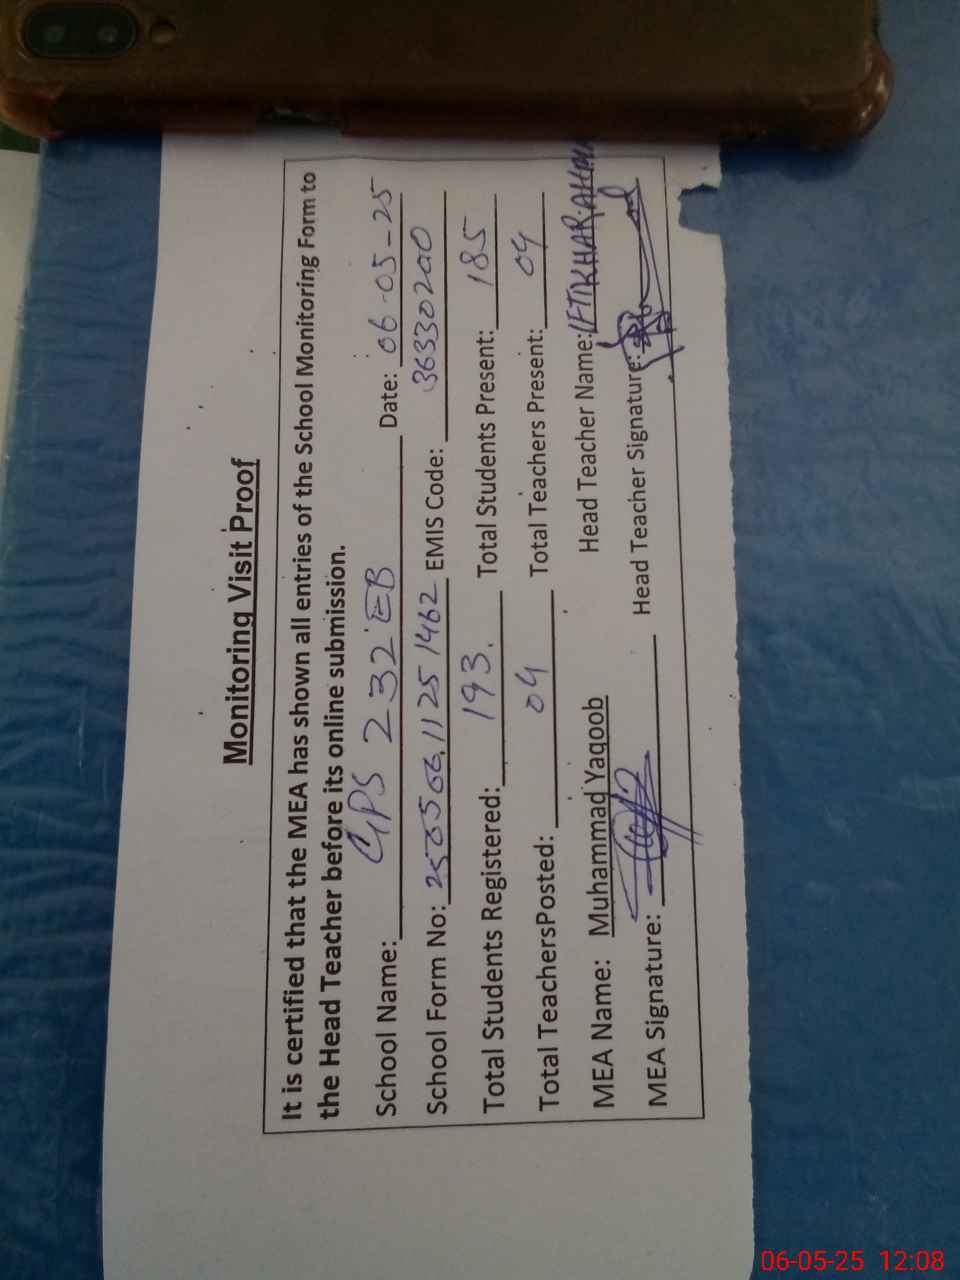 Monitoring Visit Proof
It is certified that the MEA has shown all entries of the School Monitoring Form to
the Head Teacher before its online submission.
School Name: GPS 232 EB Date: 06-05-25
School Form No: 250506.1125 1462 EMIS Code: 36330200
Total Students Registered: 193. Total Students Present: 185
Total TeachersPosted: 04 Total Teachers Present: 04
MEA Name: Muhammad Yaqoob Head Teacher Name: IFTIKHAR AHMA
MEA Signature: Head Teacher Signature:
06-05-25 12:08